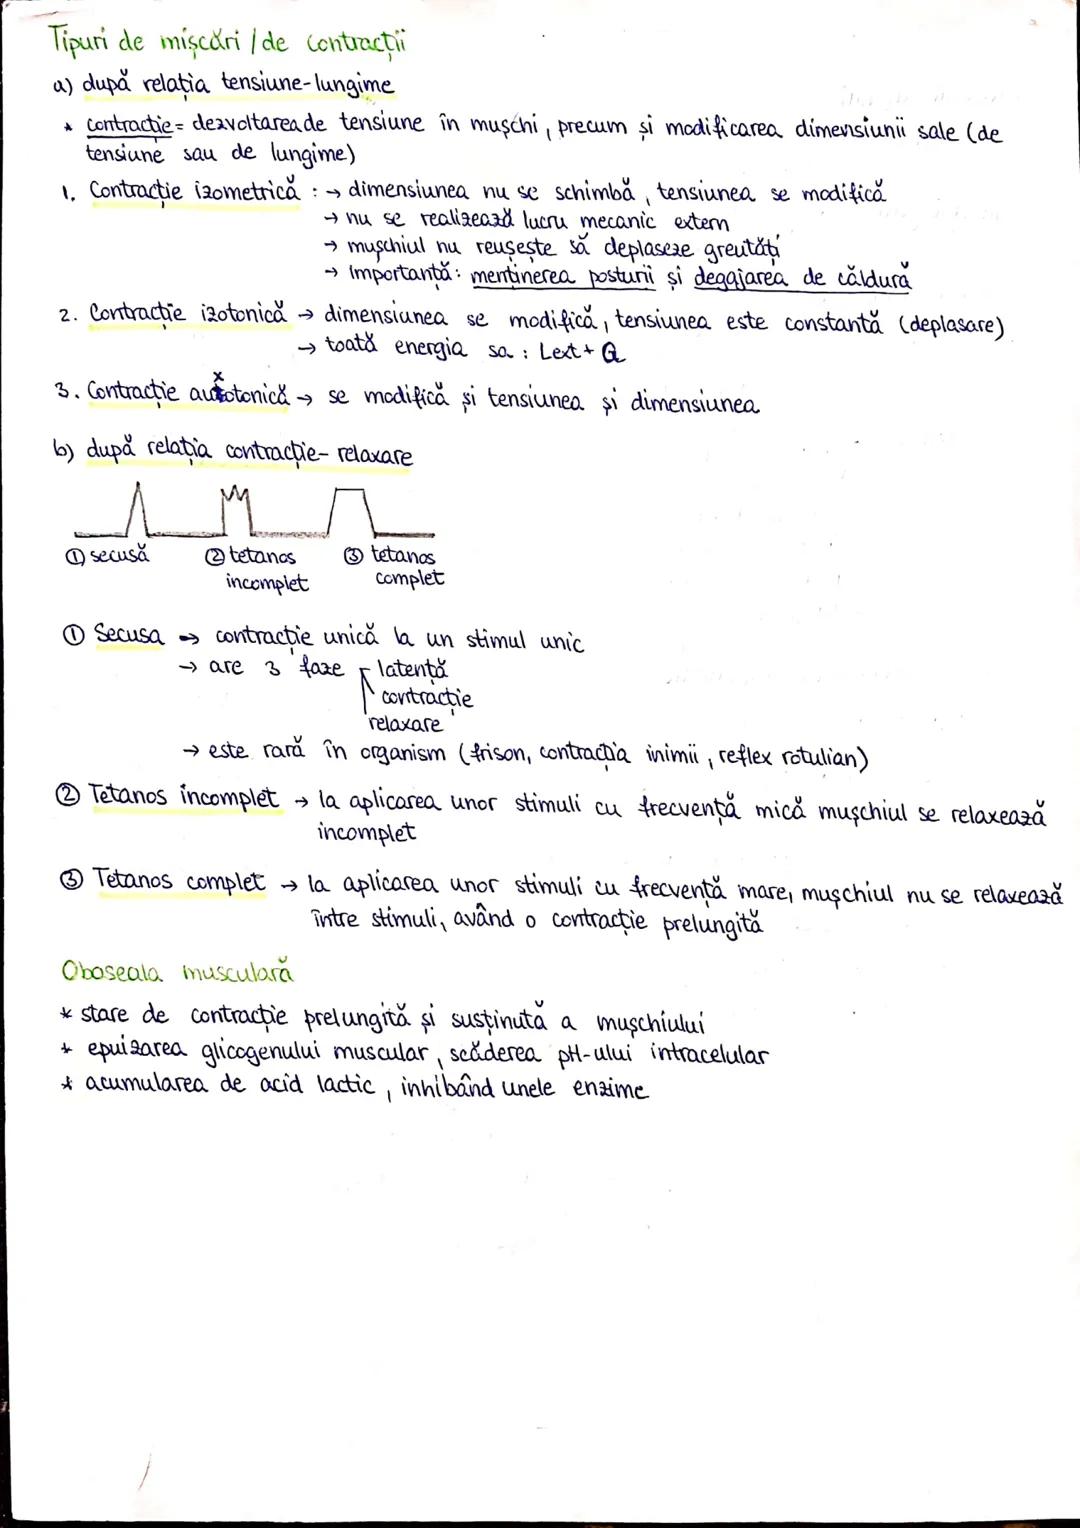 Tipuri de mișcări / de contracții
a) după relația tensiune-lungime
* contracție = dezvoltarea de tensiune în mușchi, precum și modificarea dimensiunii sale (de
tensiune sau de lungime)
1. Contracție izometrică : → dimensiunea nu se schimbă, tensiunea se modifică
→ nu se realizează lucru mecanic extern
→ mușchiul nu reușește să deplaseze greutăți
→ Importanță: menținerea posturii și degajarea de căldură
2. Contracție izotonică → dimensiunea se modifică, tensiunea este constantă (deplasare)
→ toată energia sa : Lext + Q
x
3. Contracție auxotonică → se modifică și tensiunea și dimensiunea
b) după relația contracție-relaxare
① secusă ② tetanos ③ tetanos
incomplet complet
① Secusa → contracție unică la un stimul unic
→ are 3 faze latență
contracție
relaxare
→ este rară în organism (frison, contracția inimii, reflex rotulian)
② Tetanos incomplet → la aplicarea unor stimuli cu frecvență mică mușchiul se relaxează
incomplet
③ Tetanos complet → la aplicarea unor stimuli cu frecvență mare, mușchiul nu se relaxează
între stimuli, având o contracție prelungită
Oboseala musculară
* stare de contracție prelungită și susținută a mușchiului
* epuizarea glicogenului muscular, scăderea pH-ului intracelular
* acumularea de acid lactic, inhibând unele enzime